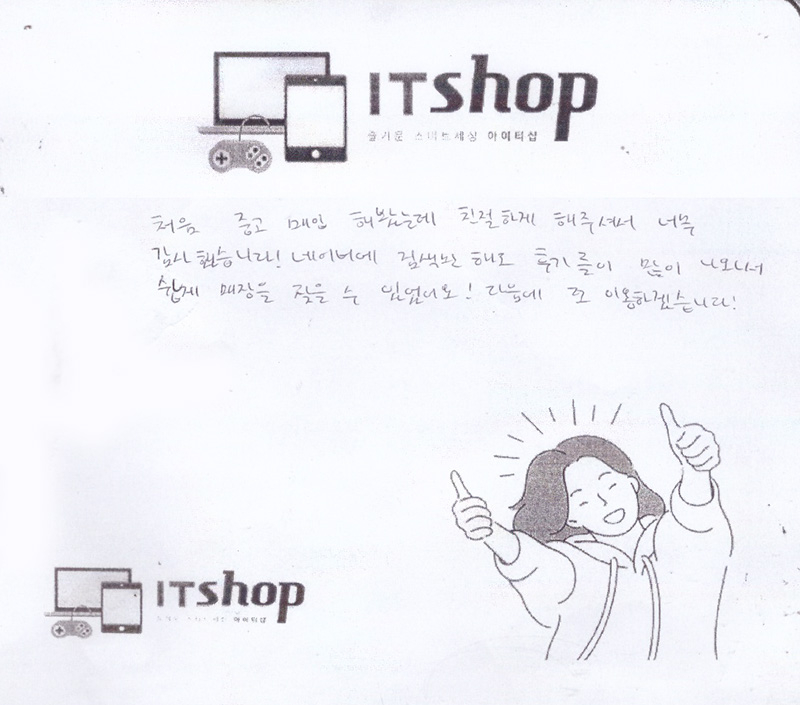 ITshop
즐거운 스마트세상 아이티샵
처음 중고 매입 해봤는데 친절하게 해주셔서 너무
감사했습니다! 네이버에 검색만 해도 후기들이 많이 나오니서
쉽게 매장을 찾을 수 있었어요! 다음에 또 이용하겠습니다!
ITshop
아이티샵